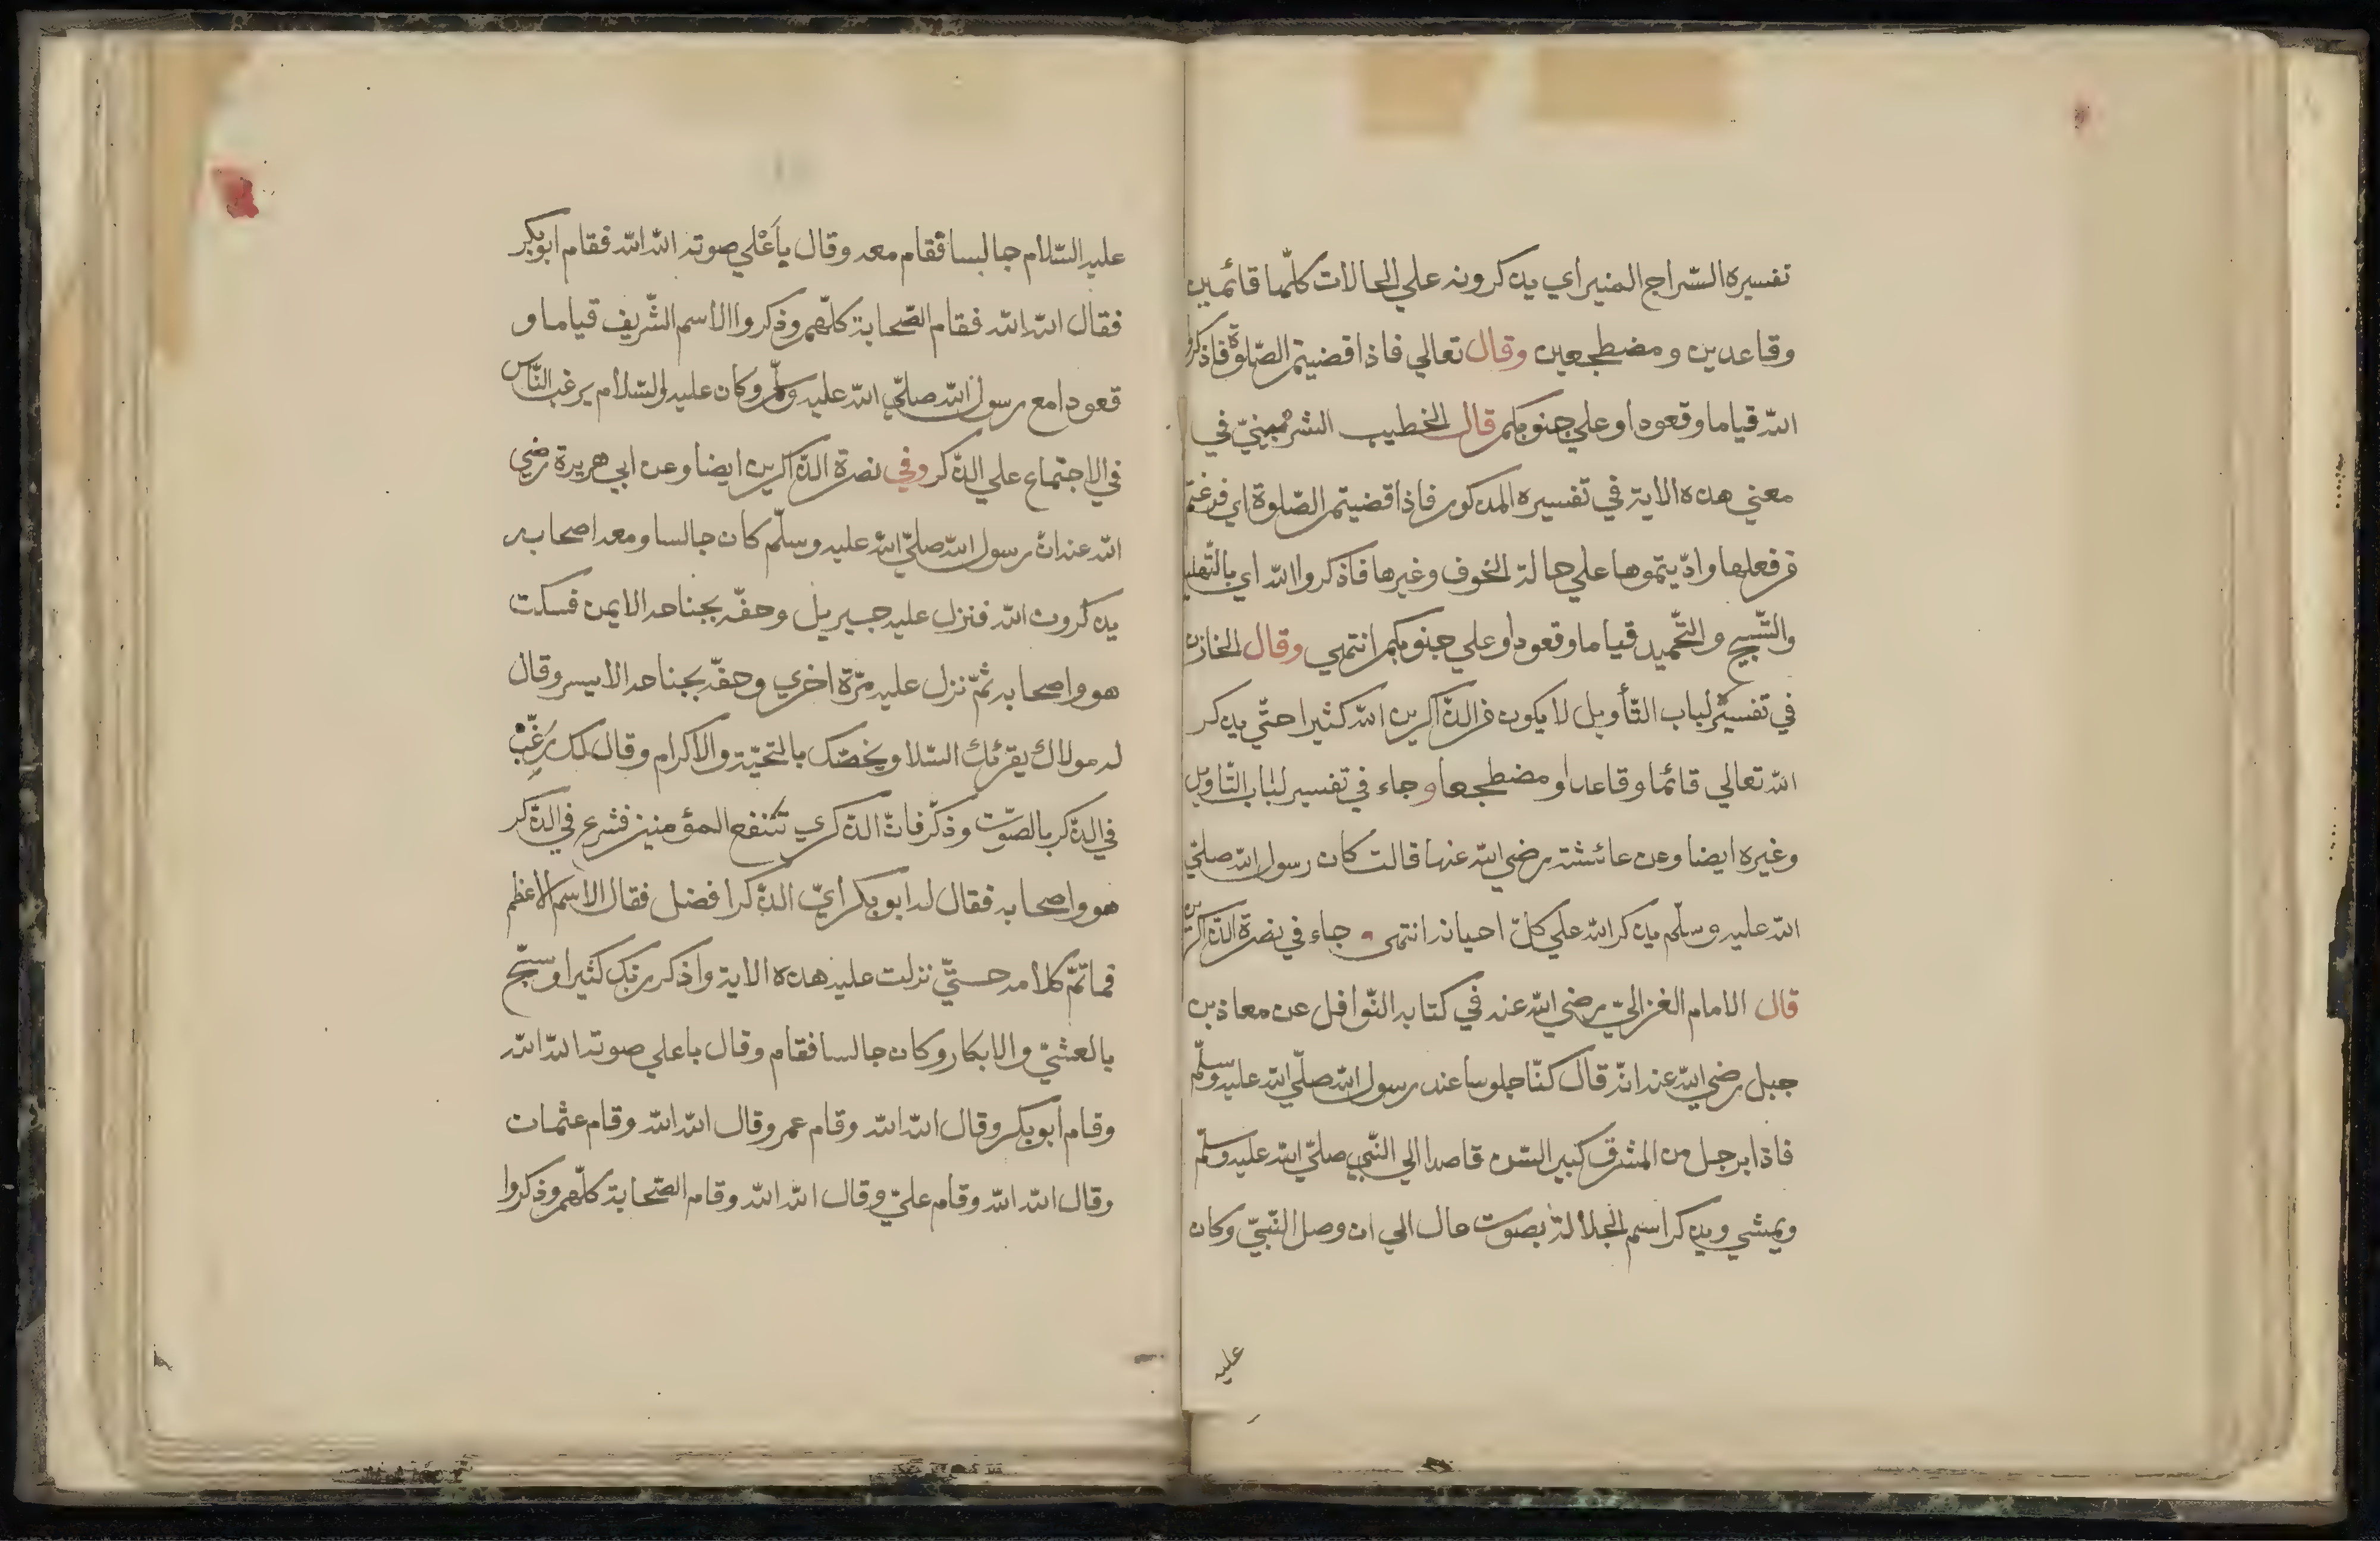 تفسيره السّراج المنير اي يذكرونه علي الحالات كلّها قائمين
وقاعدين ومضطجعين وقال تعالي فاذا قضيتم الصّلوة فاذكروا
الله قياما وقعودا وعلي جنوبكم قال الخطيب الشربينيّ في
معني هذه الاية في تفسيره المذكور فاذا قضيتم الصّلوة اي فرغتم
من فعلها وادّيتموها علي حالة الخوف وغيرها فاذكروا الله اي بالتّهليل
والتّسبيح والتّحميد قياما وقعودا وعلي جنوبكم انتهي وقال الخازن
في تفسيره لباب التّأويل لا يكون من الذّاكرين الله كثيرا حتّي يذكر
الله تعالي قائما وقاعدا ومضطجعا وجاء في تفسير لباب التّاويل
وغيره ايضا وعن عائشة رضي الله عنها قالت كان رسول الله صلّي
الله عليه وسلّم يذكر الله علي كلّ احيانه انتهى و جاء في نصرة الذّاكرين
قال الامام الغزاليّ رضي الله عنه في كتابه النّوافل عن معاذ بن
جبل رضي الله عنه انّه قال كنّا جلوسا عند رسول الله صلّي الله عليه وسلّم
فاذا برجل من المشرق كبير السّن قاصدا الي النّبي صلّي الله عليه وسلّم
ويمشي ويذكر اسم الجلالة بصوت عال الي ان وصل النّبيّ وكان
عليه
عليه السّلام جالسا فقام معه وقال بأعْلي صوته الله الله فقام ابو بكر
فقال الله الله فقام الصّحابة كلّهم وذكروا الاسم الشّريف قياما و
قعودا مع رسول الله صلّي الله عليه وسلّم وكان عليه السّلام يرغب النّاس
في الاجتماع علي الذّكر وفي نصرة الذّاكرين ايضا وعن ابي هريرة رضي
الله عنه انّ رسول الله صلّي الله عليه وسلّم كان جالسا ومعه اصحابه
يذكرون الله فنزل عليه جبريل وحفّه بجناحه الايمن فسكت
هو واصحابه ثمّ نزل عليه مرّة اخري وحفّه بجناحه الايسر وقال
له مولاك يقرئك السّلا ويخصّك بالتحيّة والاكرام وقال لك رَغِّبْ
في الذّكر بالصّوت وذكّر فانّ الذّكري تنفع المؤمنين فشرع في الذّكر
هو واصحابه فقال له ابو بكر ايّ الذّكر افضل فقال الاسم الاعظم
فما تمّ كلامه حتّي نزلت عليه هذه الاية واذكر ربّك كثيرا وسبّح
بالعشيّ والابكار وكان جالسا فقام وقال باعلي صوته الله الله
وقام أبو بكر وقال الله الله وقام عمر وقال الله الله وقام عثمان
وقال الله الله وقام عليّ وقال الله الله وقام الصّحابة كلّهم وذكروا